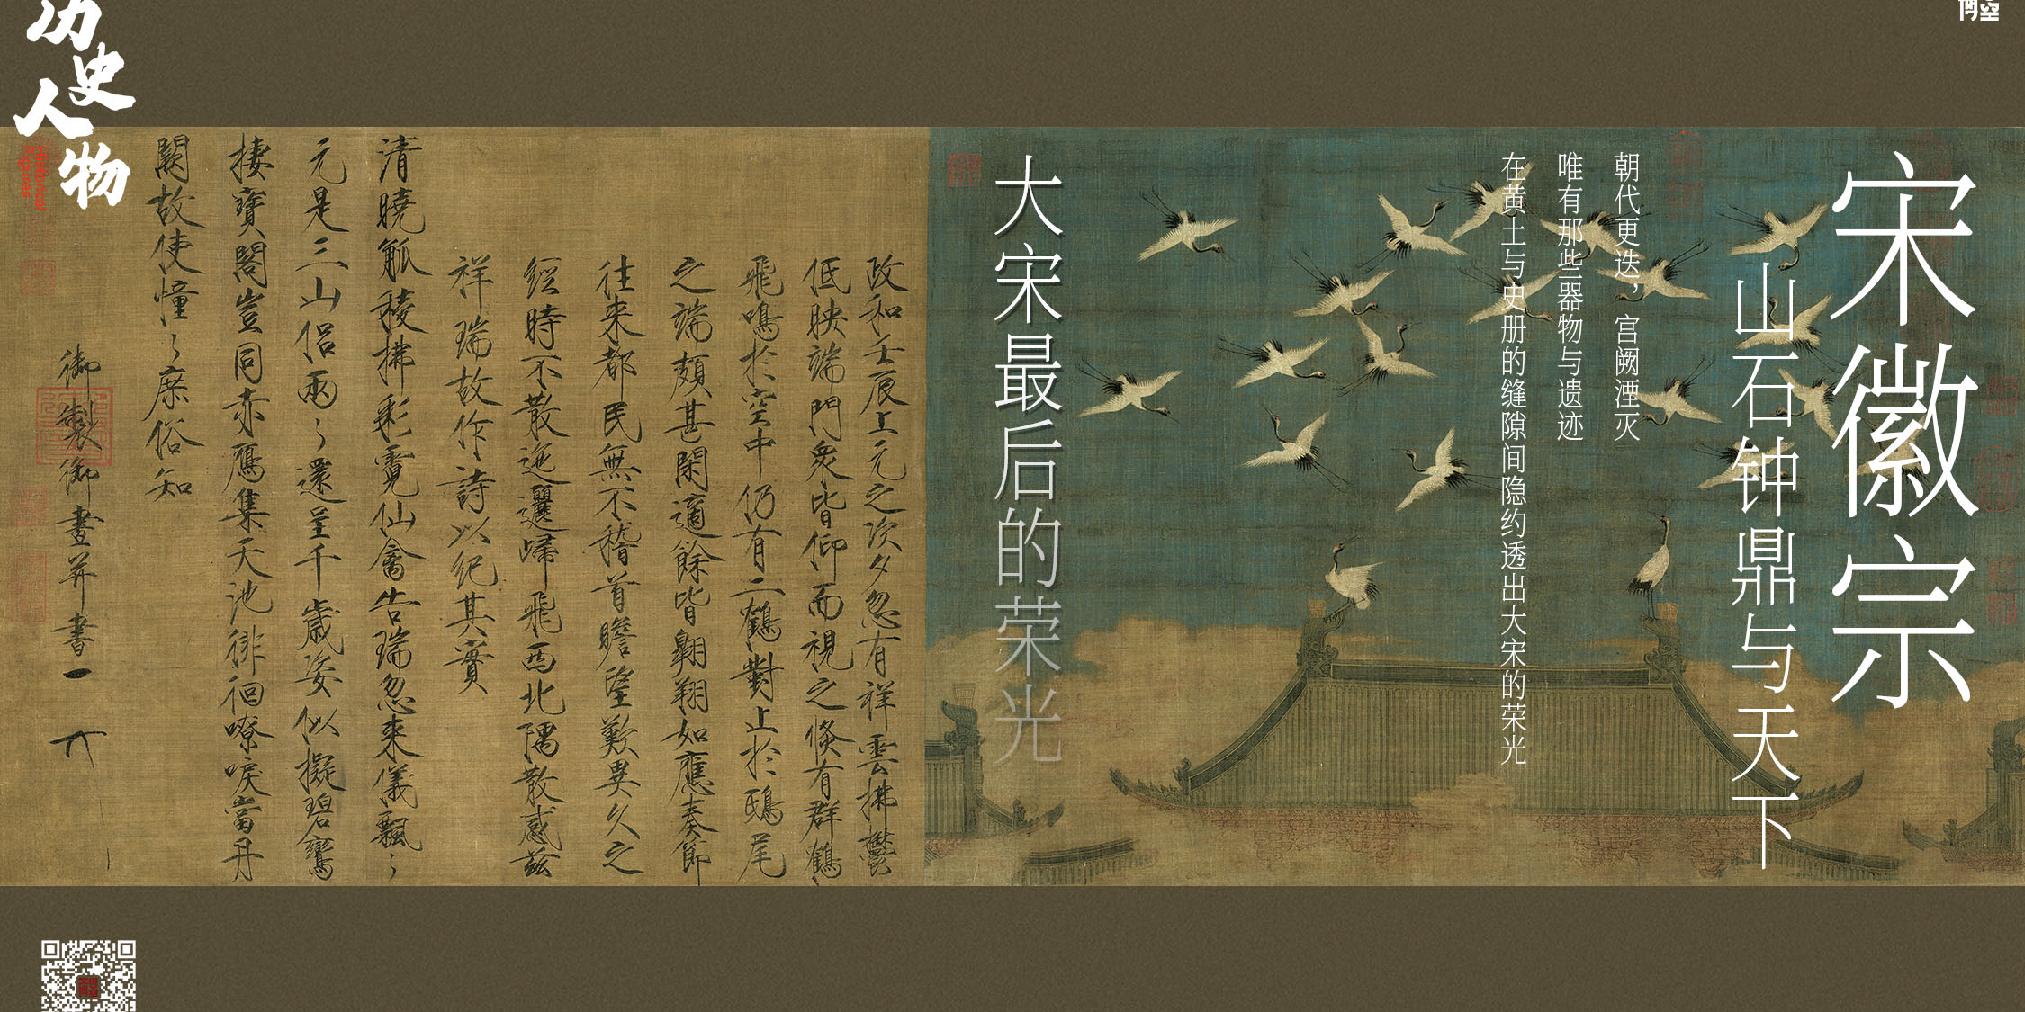 宋徽宗
山石钟鼎与天下
朝代更迭，宫阙湮灭
唯有那些器物与遗迹
在黄土与史册的缝隙间隐约透出大宋的荣光
大宋最后的荣光
政和壬辰上元之次夕忽有祥雲拂鬱
低映端門眾皆仰而視之倏有群鶴
飛鳴於空中仍有二鶴對止於鴟尾
之端頗甚閑適餘皆翱翔如應奏節
往來都民無不稽首瞻望歎異久之
經時不散迤邐歸飛西北隅散感茲
祥瑞故作詩以紀其實
清曉觚稜拂彩霓仙禽告瑞忽來儀飄〻
元是三山侶兩〻還呈千歲姿似擬碧鸞
棲寶閣豈同赤鴈集天池徘徊嘹唳當丹
闕故使憧〻庶俗知
御製御畫并書
历史人物